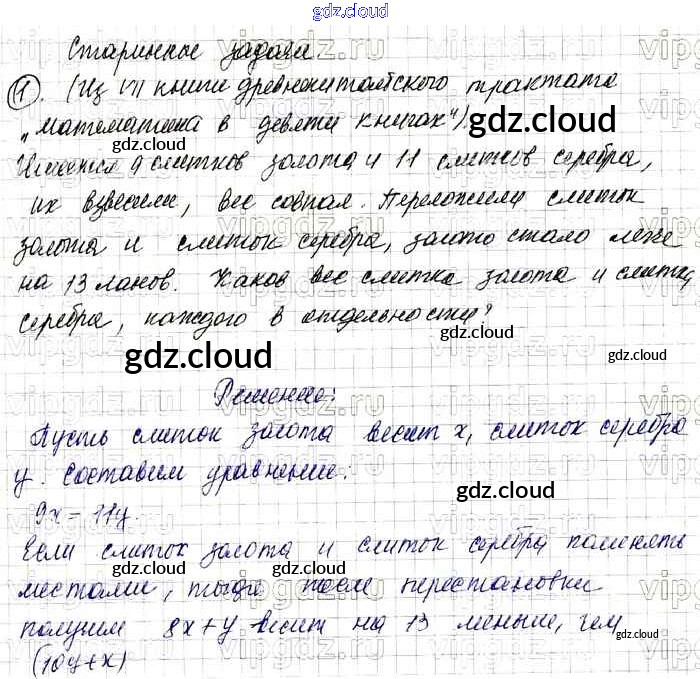 gdz.cloud
Старинные задачи
1. (Из VII книги древнекитайского трактата
„Математика в девяти книгах") gdz.cloud
Имеется 9 слитков золота и 11 слитков серебра,
их взвесили, вес совпал. Переложили слиток
золота и слиток серебра, золото стало легче
на 13 ланов. Каков вес слитка золота и слитка
серебра, каждого в отдельности?
gdz.cloud
Решение:
Пусть слиток золота весит x, слиток серебра
y. Составим уравнение:
9x = 11y.
Если слиток золота и слиток серебра поменять
местами, тогда после перестановки
получим 8x + y весит на 13 меньше, чем
(10y + x)